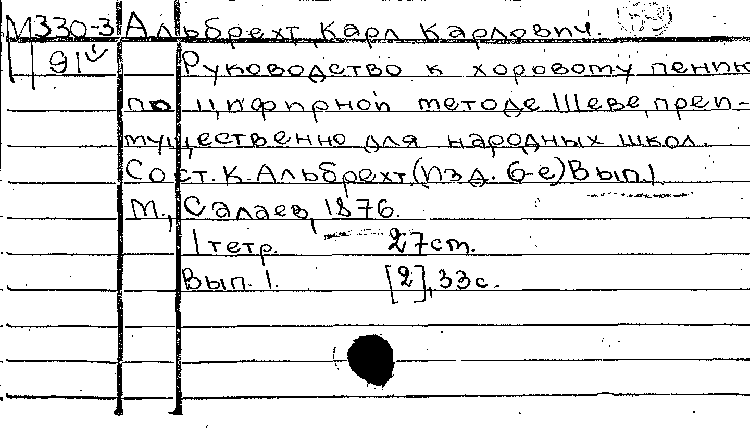 М330-3 Альбрехт, Карл Карлович.
91 Руководство к хоровому пению
по цифирной методе Шеве, преи-
мущественно для народных школ.
Сост. К. Альбрехт. (Изд. 6-е) Вып. 1
М., Салаев, 1876.
1 тетр. 27 см.
Вып. 1. [2], 33 с.